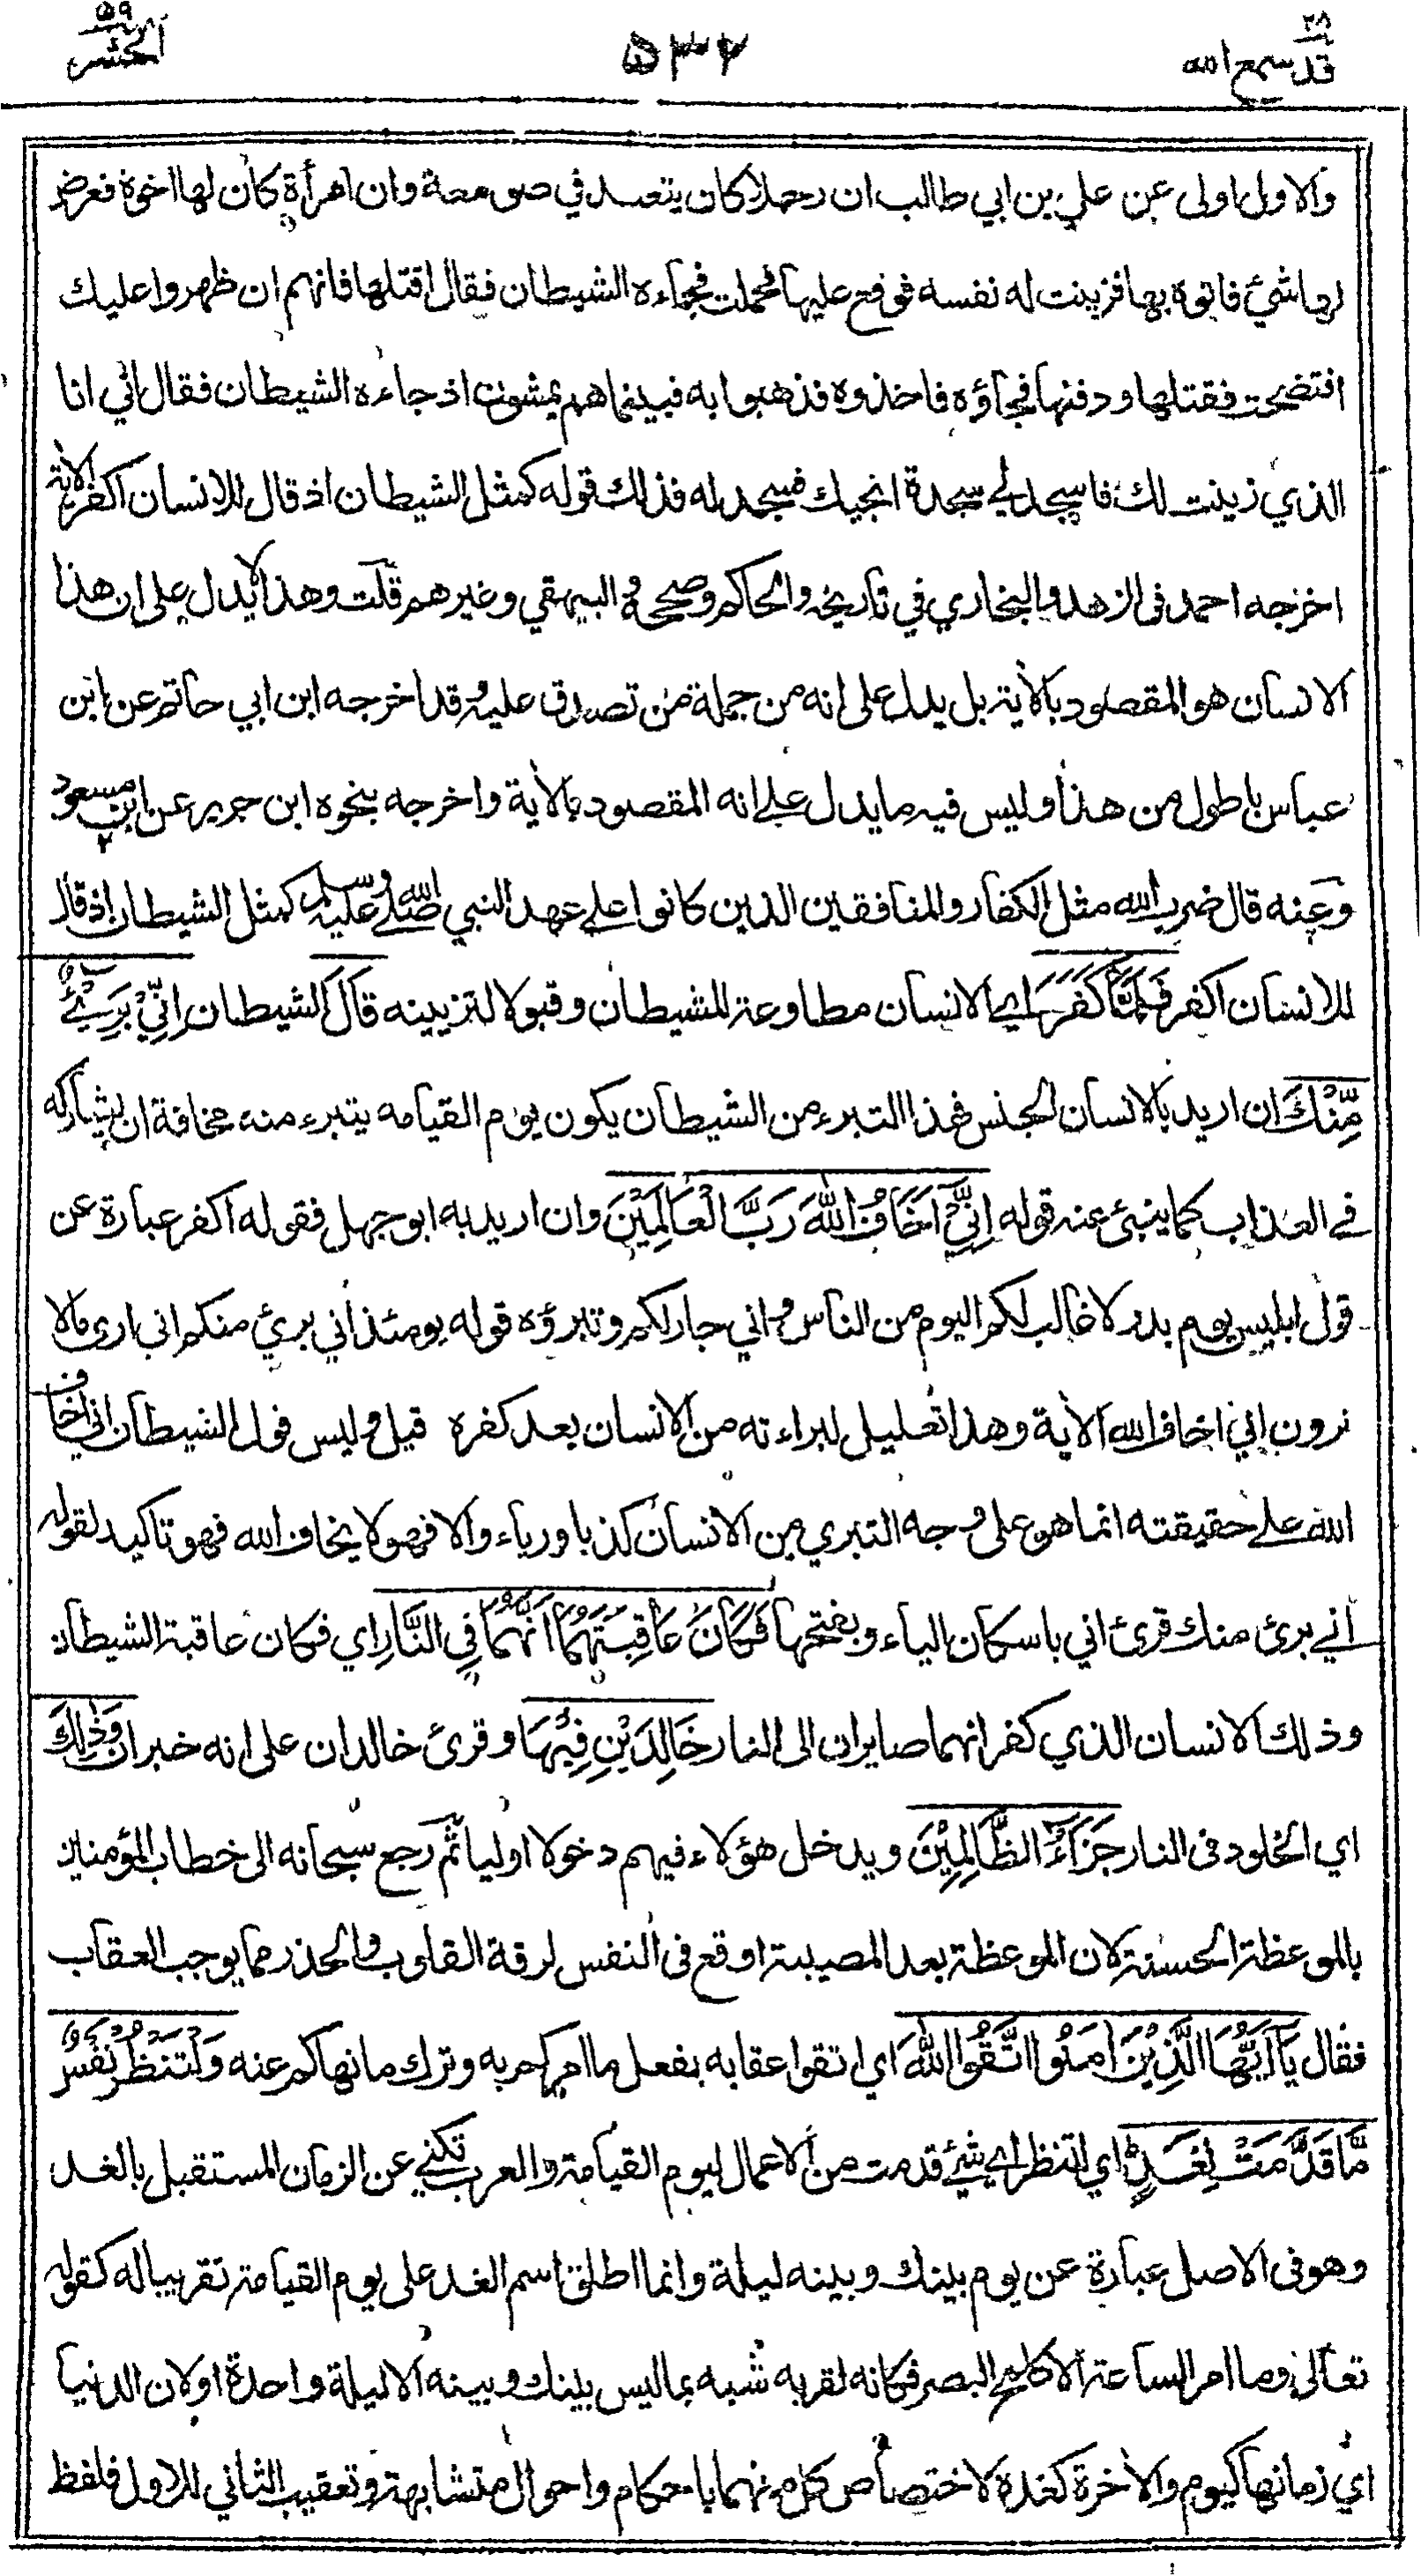 ٢٨
قد سمع الله
٥٣٢
٥٩
الحشر
والاول اولى عن علي بن ابي طالب ان رجلا كان يتعبد في صومعة وان امرأة كان لها اخوة فعرض
لها شيء فاتوه بها فزينت له نفسه فوقع عليها فحملت فجاءه الشيطان فقال اقتلها فانهم ان ظهروا عليك
افتضحت فقتلها ودفنها فجاؤه فاخذوه فذهبوا به فبينما هم يمشون اذ جاءه الشيطان فقال اني انا
الذي زينت لك فاسجد لي سجدة انجيك فسجد له فذلك قوله كمثل الشيطان اذ قال للانسان اكفر الاية
اخرجه احمد فى الزهد والبخاري في تاريخه والحاكم وصححه والبيهقي وغيرهم قلت وهذا لا يدل على ان هذا
الانسان هو المقصود بالاية بل يدل على انه من جملة من تصدق عليه وقد اخرجه ابن ابي حاتم عن ابن
عباس باطول من هذا وليس فيه ما يدل على انه المقصود بالاية واخرجه بنحوه ابن جرير عن ابن مسعود
وعنه قال ضرب الله مثل الكفار والمنافقين الذين كانوا على عهد النبي صلى الله عليه وسلم كمثل الشيطان اذ قال
للانسان اكفر فَلَمَّا كَفَرَ اي الانسان مطاوعة للشيطان وقبولا لتزيينه قَالَ الشيطان اِنِّيْ بَرِيْءٌ
مِّنْكَ ان اريد بالانسان الجنس فهذا التبرء من الشيطان يكون يوم القيامه يتبرء منه مخافة ان يشاركه
في العذاب كما ينبئ عنه قوله اِنِّيْ اَخَافُ اللّٰهَ رَبَّ الْعَالَمِيْنَ وان اريد به ابو جهل فقوله اكفر عبارة عن
قول ابليس يوم بدر لا غالب لكم اليوم من الناس واني جار لكم وتبرؤه قوله يومئذ اني بريئ منكم اني ارى مالا
ترون اني اخاف الله الاية وهذا تعليل لبراءته من الانسان بعد كفره قيل وليس قول الشيطان اني اخاف
الله على حقيقته انما هو على وجه التبري من الانسان كذبا ورياء والا فهو لا يخاف الله فهو تاكيد لقوله
اني برئ منك قرئ اني باسكان الياء وبفتحها فَكَانَ عَاقِبَتَهُمَا اَنَّهُمَا فِي النَّارِ اي فكان عاقبة الشيطان
وذلك الانسان الذي كفر انهما صايران الى النار خَالِدَيْنِ فِيْهَا وقرئ خالدان على انه خبر ان وَذٰلِكَ
اي الخلود فى النار جَزَاءُ الظَّالِمِيْنَ ويدخل هؤلاء فيهم دخولا اوليا ثم رجع سبحانه الى خطاب المؤمنين
بالموعظة الحسنة لان الموعظة بعد المصيبة اوقع فى النفس لرقة القلوب والحذر مما يوجب العقاب
فقال يَآ اَيُّهَا الَّذِيْنَ اٰمَنُوا اتَّقُوا اللّٰهَ اي اتقوا عقابه بفعل ما امركم به وترك ما نهاكم عنه وَلْتَنْظُرْ نَفْسٌ
مَّا قَدَّمَتْ لِغَدٍ اي لتنظر اي شيئ قدمت من الاعمال ليوم القيامة والعرب تكني عن الزمان المستقبل بالغد
وهو فى الاصل عبارة عن يوم بينك وبينه ليلة وانما اطلق اسم الغد على يوم القيامة تقريبا له كقوله
تعالى وما امر الساعة الا كلمح البصر فكانه لقربه شبه بما ليس بينك وبينه الا ليلة واحدة او لان الدنيا
اي زمانها كيوم والاخرة كغده لاختصاص كل منهما باحكام واحوال متشابهة وتعقيب الثاني للاول فلفظ